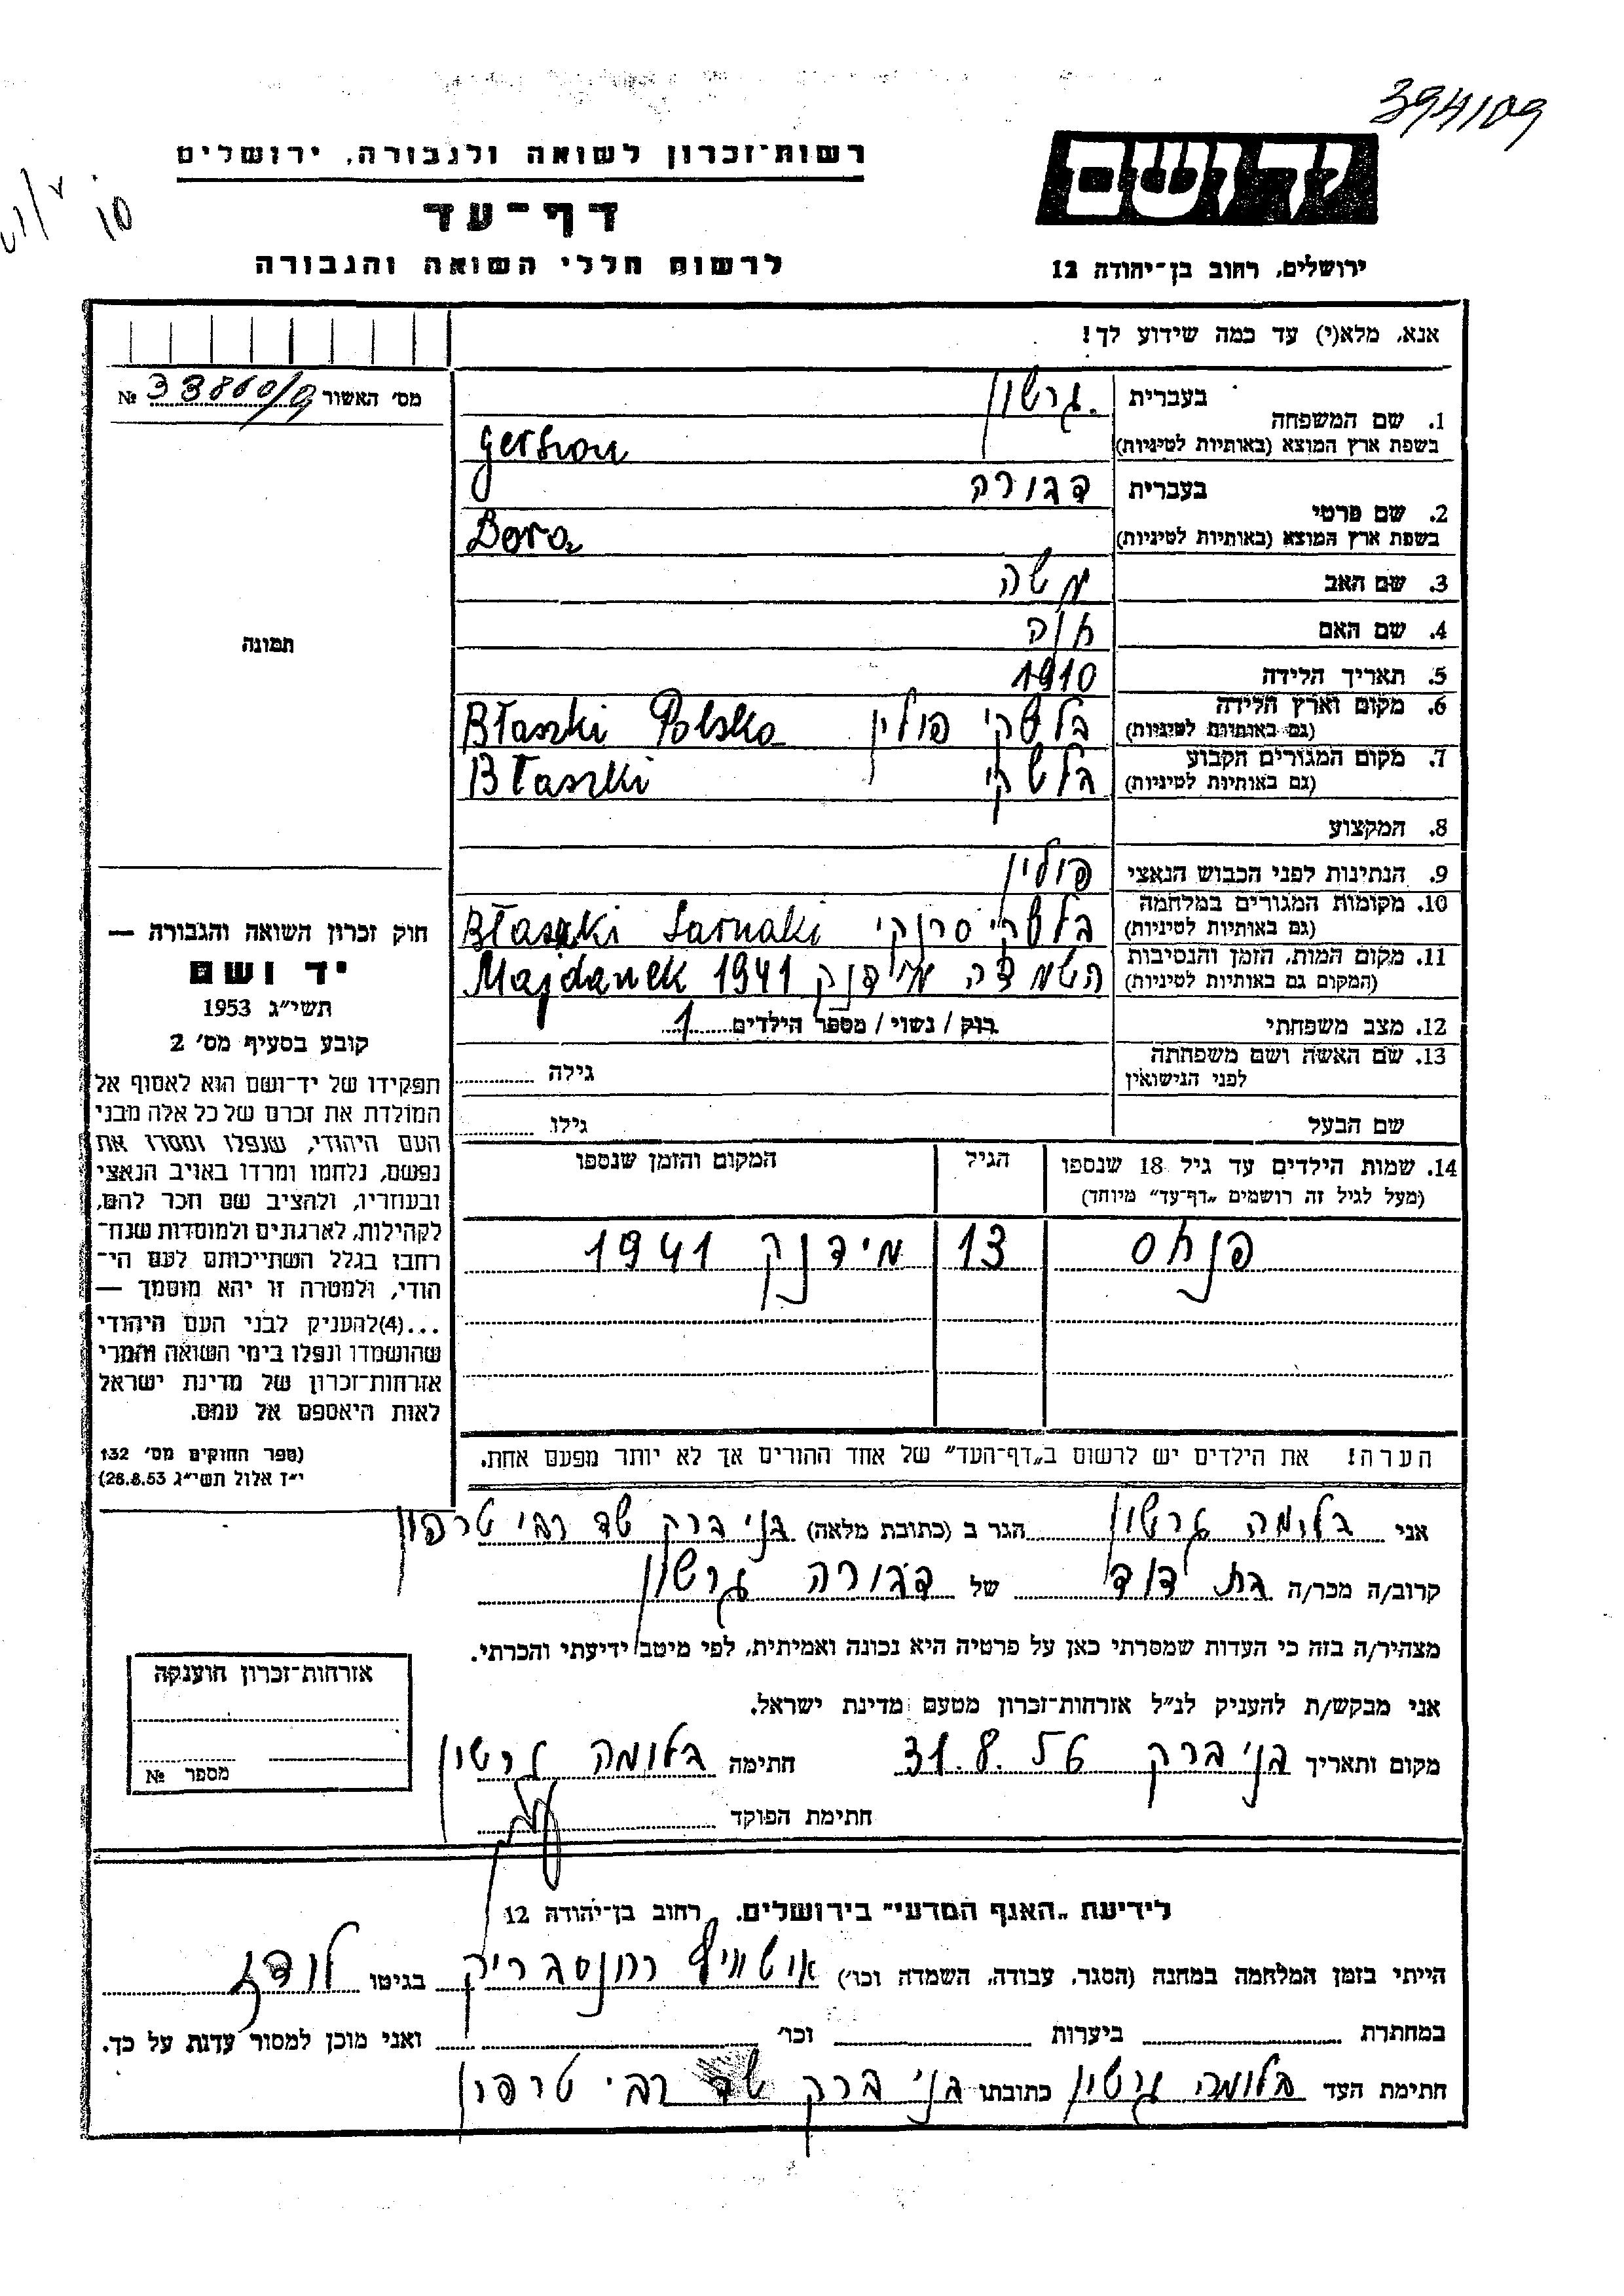 394/109
רשות-זכרון לשואה ולגבורה, ירושלים
יד ושם
דף-עד
לרשום חללי השואה והגבורה
ירושלים, רחוב בן-יהודה 12
אנא, מלא(י) עד כמה שידוע לך!
מס׳ האשור № 33860/
1. שם המשפחה
בעברית גרשון
בשפת ארץ המוצא (באותיות לטיניות) Gershon
2. שם פרטי
בעברית דבורה
בשפת ארץ המוצא (באותיות לטיניות) Bora
3. שם האב משה
4. שם האם חוה
5. תאריך הלידה 1910
6. מקום וארץ הלידה (גם באותיות לטיניות) בלשקי פולין Błaszki Polska
7. מקום המגורים הקבוע (גם באותיות לטיניות) בלשקי Błaszki
8. המקצוע
9. הנתינות לפני הכבוש הנאצי פולין
10. מקומות המגורים במלחמה (גם באותיות לטיניות) בלשקי סרנקי Błaszki Sarnaki
11. מקום המות, הזמן והנסיבות (המקום גם באותיות לטיניות) השמדה מידנק 1941 Majdanek
12. מצב משפחתי רוק / נשוי / מספר הילדים 1
13. שם האשה ושם משפחתה לפני הנישואין גילה
שם הבעל גילו
14. שמות הילדים עד גיל 18 שנספו (מעל לגיל זה רושמים „דף-עד״ מיוחד) הגיל המקום והזמן שנספו
פנחס 13 מידנק 1941
הערה! את הילדים יש לרשום ב„דף-העד״ של אחד ההורים אך לא יותר מפעם אחת.
תמונה
חוק זכרון השואה והגבורה —
יד ושם
תשי״ג 1953
קובע בסעיף מס׳ 2
תפקידו של יד-ושם הוא לאסוף אל
המולדת את זכרם של כל אלה מבני
העם היהודי, שנפלו ומסרו את
נפשם, נלחמו ומרדו באויב הנאצי
ובעוזריו, ולהציב שם וזכר להם,
לקהילות, לארגונים ולמוסדות שנח-
רבו בגלל השתייכותם לעם הי-
הודי, ולמטרה זו יהא מוסמך —
...(4)להעניק לבני העם היהודי
שהושמדו ונפלו בימי השואה והמרי
אזרחות-זכרון של מדינת ישראל
לאות היאספם אל עמם.
(ספר החוקים מס׳ 132
י״ז אלול תשי״ג 28.8.53)
אני בלומה גרשון הגר ב (כתובת מלאה) בני ברק שד רבי טרפון
קרוב/ה מכר/ה בת דוד של דבורה גרשון
מצהיר/ה בזה כי העדות שמסרתי כאן על פרטיה היא נכונה ואמיתית, לפי מיטב ידיעתי והכרתי.
אני מבקש/ת להעניק לנ״ל אזרחות-זכרון מטעם מדינת ישראל.
מקום ותאריך בני ברק 31.8.56 חתימה בלומה גרשון
חתימת הפוקד
אזרחות-זכרון הוענקה
מספר №
לידיעת „האגף המדעי״ בירושלים, רחוב בן-יהודה 12
הייתי בזמן המלחמה במחנה (הסגר, עבודה, השמדה וכו׳) אושוויץ רוונסבריק בגיטו לודז
במחתרת ביערות וכו׳ ואני מוכן למסור עדות על כך.
חתימת העד בלומה גרשון כתובתו בני ברק שד רבי טרפון